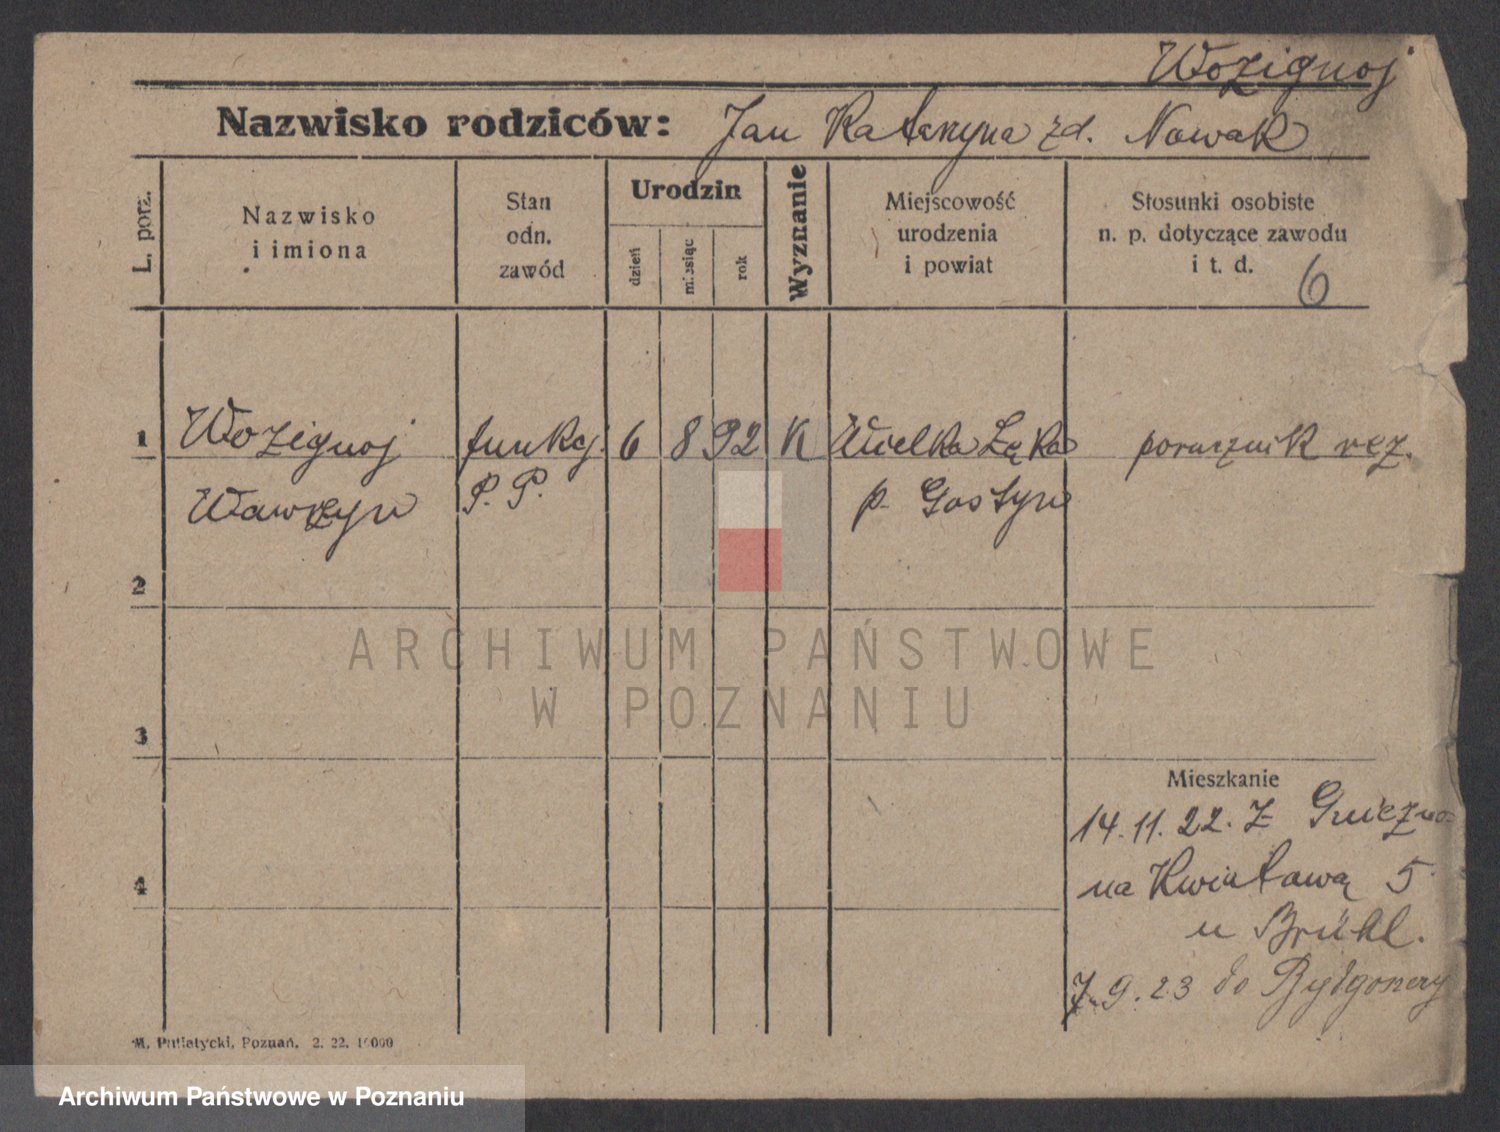 Wozignoj
Nazwisko rodziców: Jan Katarzyna zd. Nowak
L. porz.
Nazwisko
i imiona
Stan
odn.
zawód
Urodzin
dzień
miesiąc
rok
Wyznanie
Miejscowość
urodzenia
i powiat
Stosunki osobiste
n. p. dotyczące zawodu
i t. d.
6
1 Wozignoj funkcj. 6 8 92 K Wielka Łęka porucznik rez.
Wawrzyn P. P. p. Gostyn
2
3
4
Mieszkanie
14.11.22. Z Gniezno
na Kwiatową 5
u Brühl.
7.9.23 do Bydgoszczy
M. Putiatycki, Poznań, 2. 22. 10000
ARCHIWUM PAŃSTWOWE
W POZNANIU
Archiwum Państwowe w Poznaniu